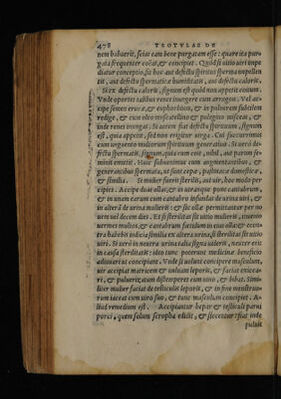 478 TROTVLAE DE
nem habuerit, sciat eam bene purgatam esse: quare ita pur-
gata frequenter coëat, & concipiet. Quòd si uitio uiri impe-
diatur conceptio, sit hoc aut defectu spiritus sperma impellen
tis, aut defectu spermaticæ humiditatis, aut defectu caloris.
Si ex defectu caloris, signum est quòd non appetit coitum.
Vnde oportet talibus renes inungere cum
cipe semen erucæ, & euphorbium, & in puluerem subtilem
redige, & cum oleo muscellino & pulegino misceas, &
inde renes inungas: Si autem fiat defectu spirituum, signum
est, quia appetit, sed non erigitur uirga. Cui succurrimus
cum unguento multorum spirituum generatiuo. Si uerò de-
fectu spermatis, signum, quia cum coit, nihil, aut parum se-
minis emittit. Huic subuenimus cum augmentantibus, &
generantibus spermata, ut sunt cepæ, pastinaca domestica,
& similia. Si mulier fuerit sterilis, aut uir, hoc modo per
cipies. Accipe duas ollas, & in utranque pone cantabrum,
& in unam earum cum cantabro infundas de urina uiri, &
in alteram de urina mulieris: & sic ollæ permittantur per no
uem uel decem dies. Et si sterilitas sit uitio mulieris, inuenies
uermes multos, & cantabrum fœtidum in eius olla, & contra
tra habebis indicia similia ex altera urina, si sterilitas sit uitio
uiri. Si uerò in neutra urina talia signa uideris, neuter erit
in causa sterilitatis: ideo tunc poterunt medicinæ beneficio
adiuuari ut concipiant. Vnde si uelint concipere masculum,
uir accipiat matricem & uuluam leporis, & faciat exicca-
ri, & puluerizatum distemperet cum uino, & bibat. Simi-
liter mulier faciat de testiculis leporis, & in fine menstruo-
rum iaceat cum uiro suo, & tunc masculum concipiet. A-
liud remedium est. Accipiantur hepar & testiculi parui
porci, quem solum scropha edidit, & siccentur: fiat inde
puluis